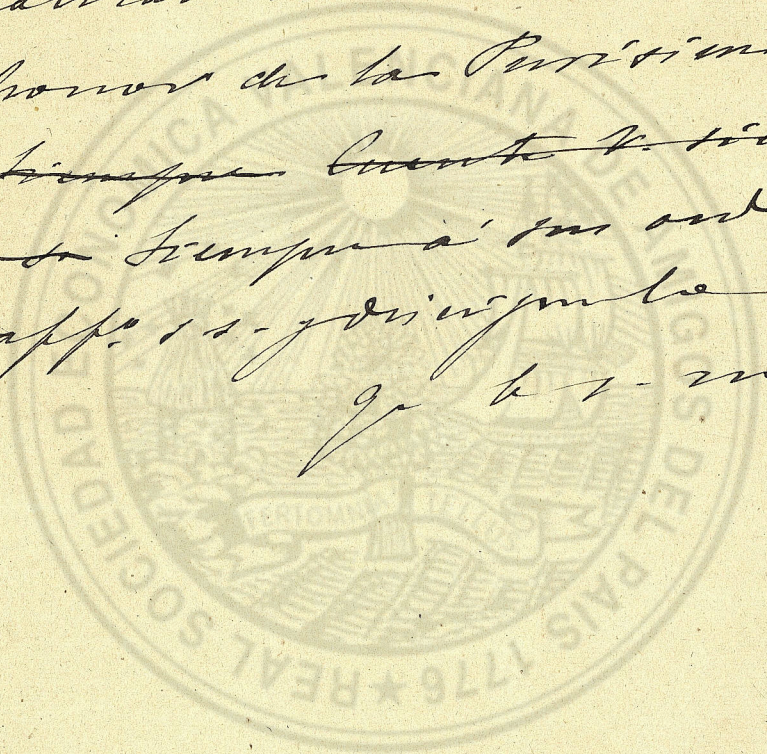 honor de la Purísim
siempre Cuente V. si
siempre á sus ord
affº. s s. y discípulo
q b s. m
REAL SOCIEDAD ECONOMICA VALENCIANA DE AMIGOS DEL PAIS 1776
FERT OMNIA TELLUS